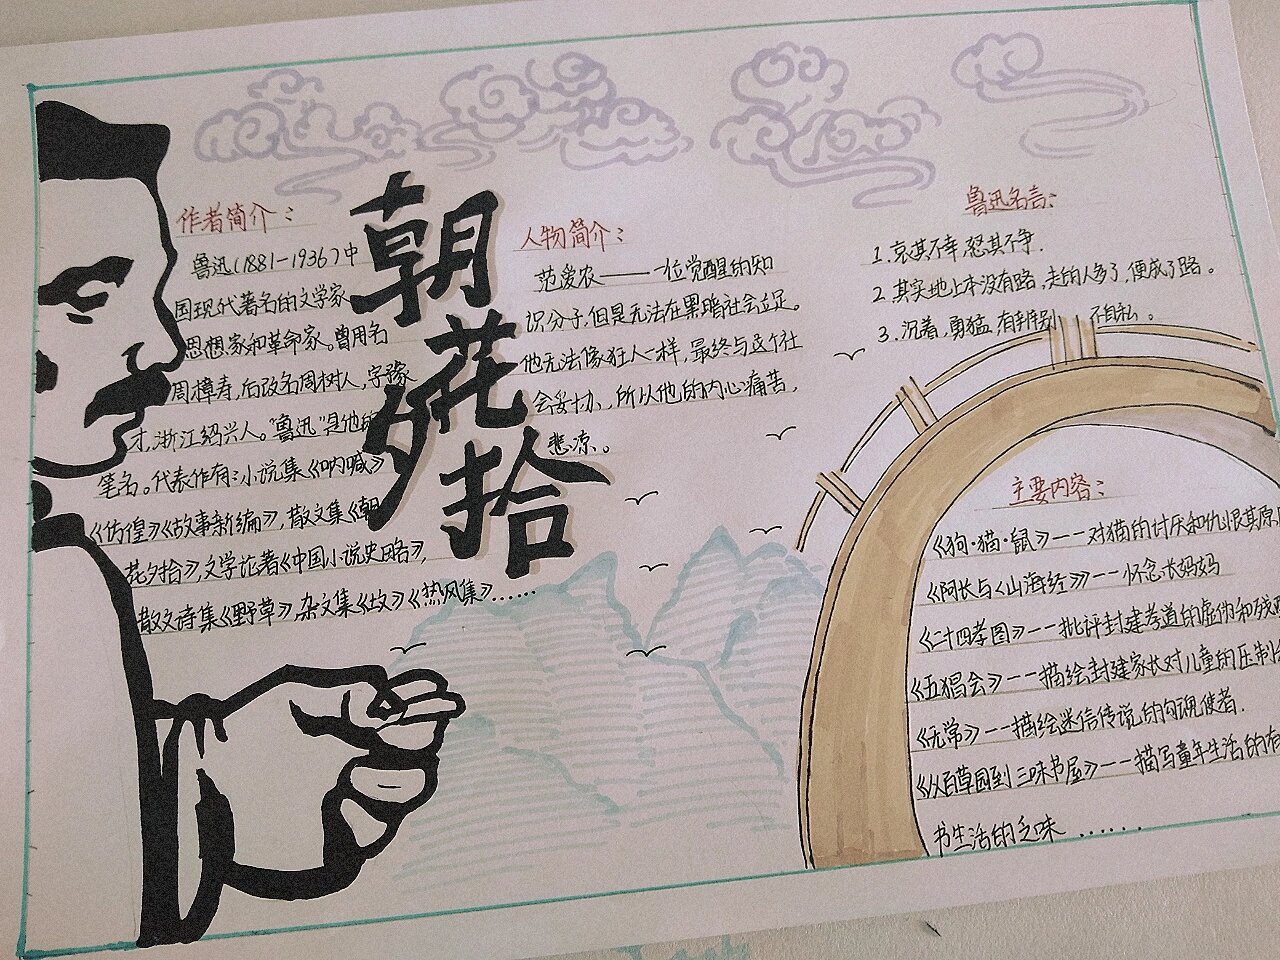 朝花夕拾
作者简介：
鲁迅(1881-1936)中
国现代著名的文学家
思想家和革命家。曾用名
周樟寿,后改名周树人,字豫
才,浙江绍兴人。"鲁迅"是他的
笔名。代表作有:小说集《呐喊》
《彷徨》《故事新编》,散文集《朝
花夕拾》,文学论著《中国小说史略》,
散文诗集《野草》,杂文集《坟》《热风集》……
人物简介：
范爱农——一位觉醒的知
识分子,但是无法在黑暗社会立足。
他无法像狂人一样,最终与这个社
会妥协,所以他的内心痛苦,
悲凉。
鲁迅名言：
1.哀其不幸,怒其不争.
2.其实地上本没有路,走的人多了,便成了路。
3.沉着,勇猛,有辨别,不自私。
主要内容：
《狗·猫·鼠》——对猫的讨厌和仇恨其原
《阿长与《山海经》》——怀念长妈妈
《二十四孝图》——批评封建孝道的虚伪和残
《五猖会》——描绘封建家长对儿童的压制
《无常》——描绘迷信传说的勾魂使者.
《从百草园到三味书屋》——描写童年生活的有
书生活的乏味……